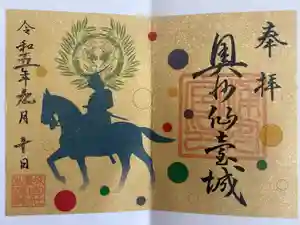 奉拝
奥州仙臺城
令和五年
月
日